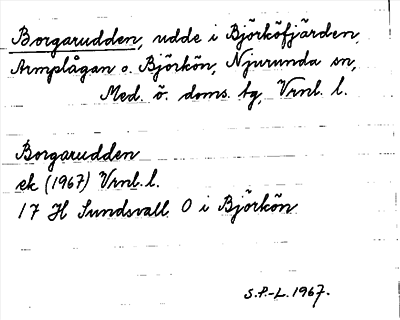 Borgarudden, udde i Björköfjärden,
Armplågan o. Björkön, Njurunda sn,
Med. ö. doms. tg, Vrnl. l.
Borgarudden
ek (1967) Vrnl. l.
17 H Sundsvall O i Björkön
S.P.-L. 1967.